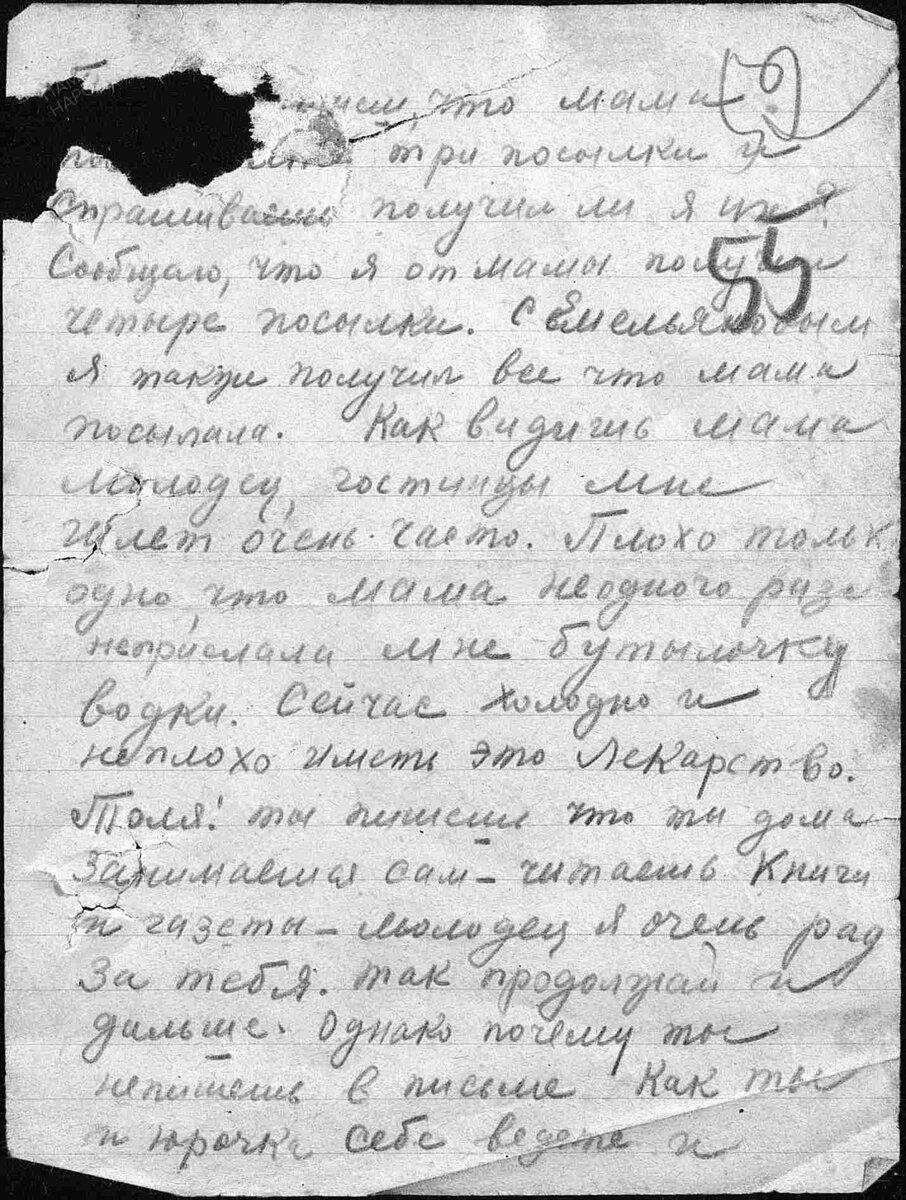 что мама 9
три посылки и
спрашиваешь получил ли я их?
Сообщаю, что я от мамы получил
55
четыре посылки. С Емельяновым
я также получил все что мама
посылала. Как видишь мама
молодец, гостинцы мне
шлет очень часто. Плохо тольк
одно, что мама неодного раза
неприслала мне бутылочку
водки. Сейчас холодно и
неплохо иметь это Лекарство.
Толя! ты пишешь что ты дома
Занимаешся сам – читаешь Книги
и газеты – молодец я очень рад
За тебя. так продолжай и
дальше. Однако почему ты
непишешь в письме Как ты
и юрочка себе ведете и